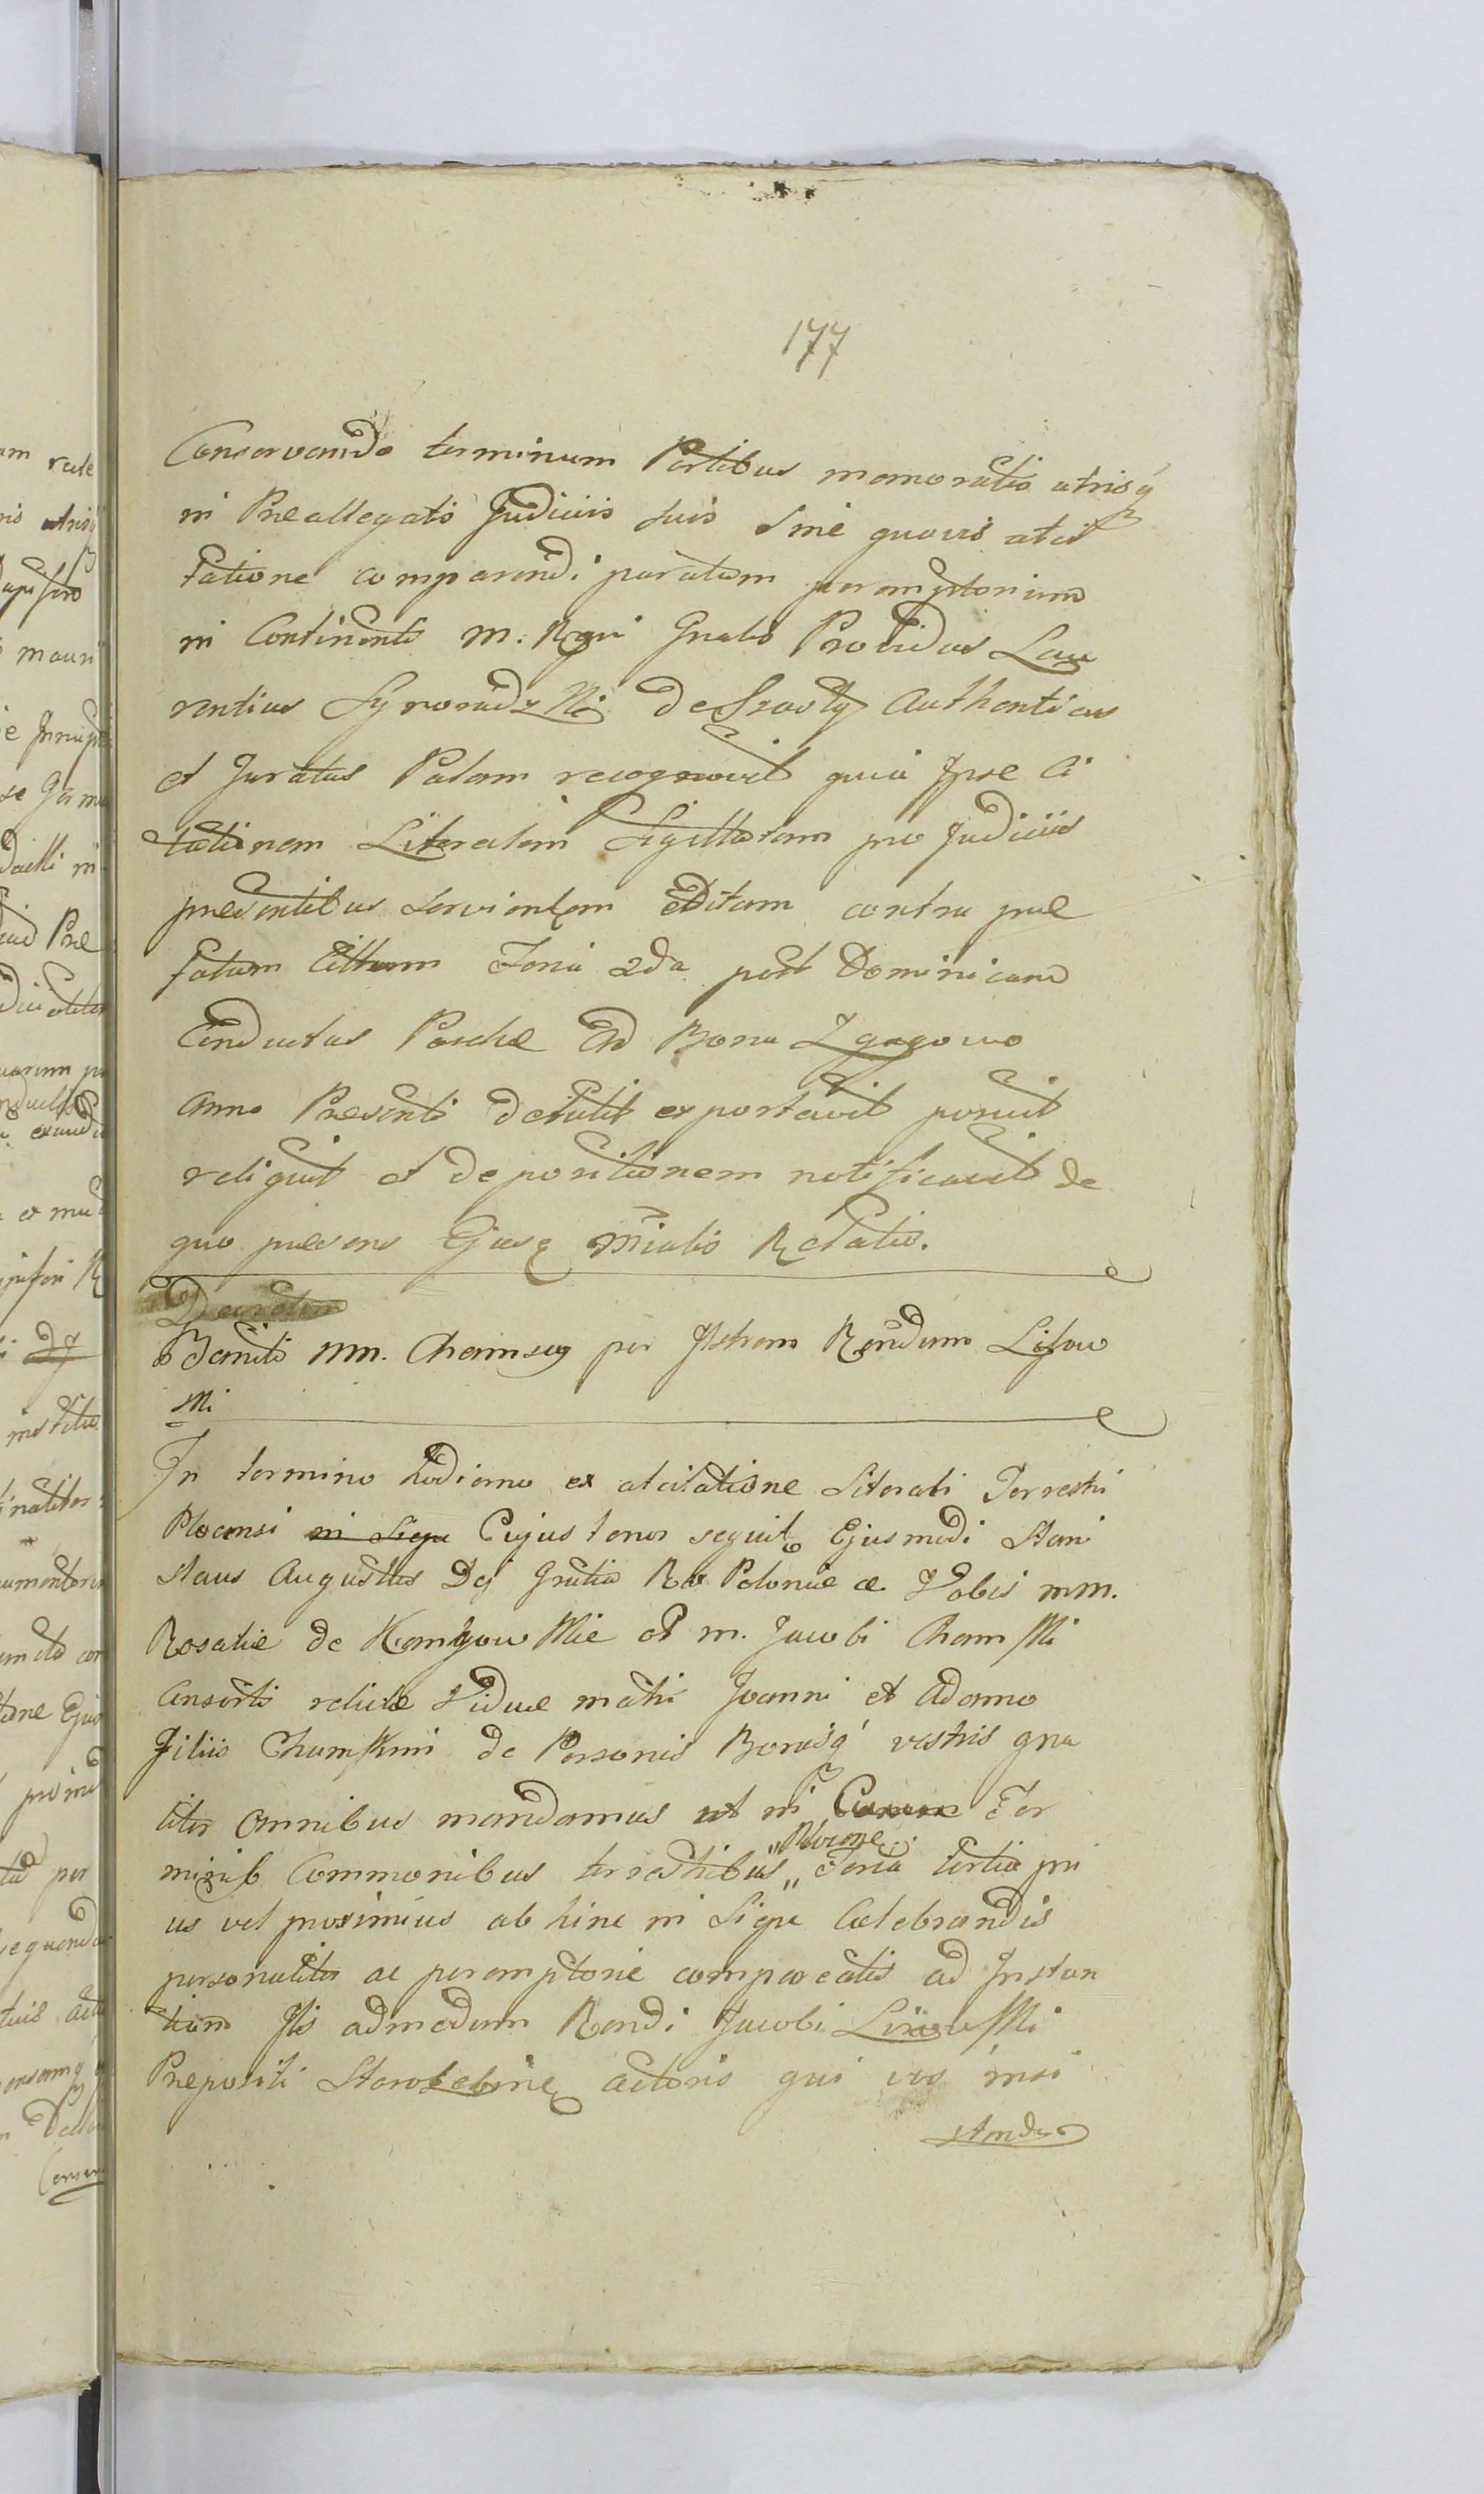 177
Conservando terminum Partibus memoratis utrisq
in Preallegatis Judiciis suis sine quavis atci
tatione comparendi paratum peremptorium
in Continenti M. Rgni Gnalis Providus Lau
rentius de Authenticus
et Juratus Palam recognovit quia Ipse Ci
tationem Literalem Sigillatam pro Judiciis
presentibus servientem Editam contra pre
fatum Cittum Feria 2da post Dominicam
Conductus Pasche Ad Bona Zgagowo
Anno Presenti detulit exportavit posuit
reliquit et depositionem notificavit de
quo presens Ejusq Mialis Relatio.
Decretum
Baniti MM. per Rendum Lisow
ski
In termino hodierno ex atcitatione Literali Terrestri
Plocensi in Siepc Cujus tenor sequit Ejusmodi Stani
slaus Augustus Dei Gratia Rex Polonie &. Vobis MM.
Rosalie de et M. Jacobi
Consorti relicte Vidue matri Joanni et Adamo
Filiis de Personis Bonisq vestris gna
liter Omnibus mandamus ut in Ter
minib Communibus terrestribus
Plocen
Feria tertia pri
us vel proximius ab hinc in Siepc Celebrandis
personaliter ac peremptorie compareatis ad Instan
tiam Ils admodum Rendi Jacobi
Prepositi actoris qui vos insi
stendo